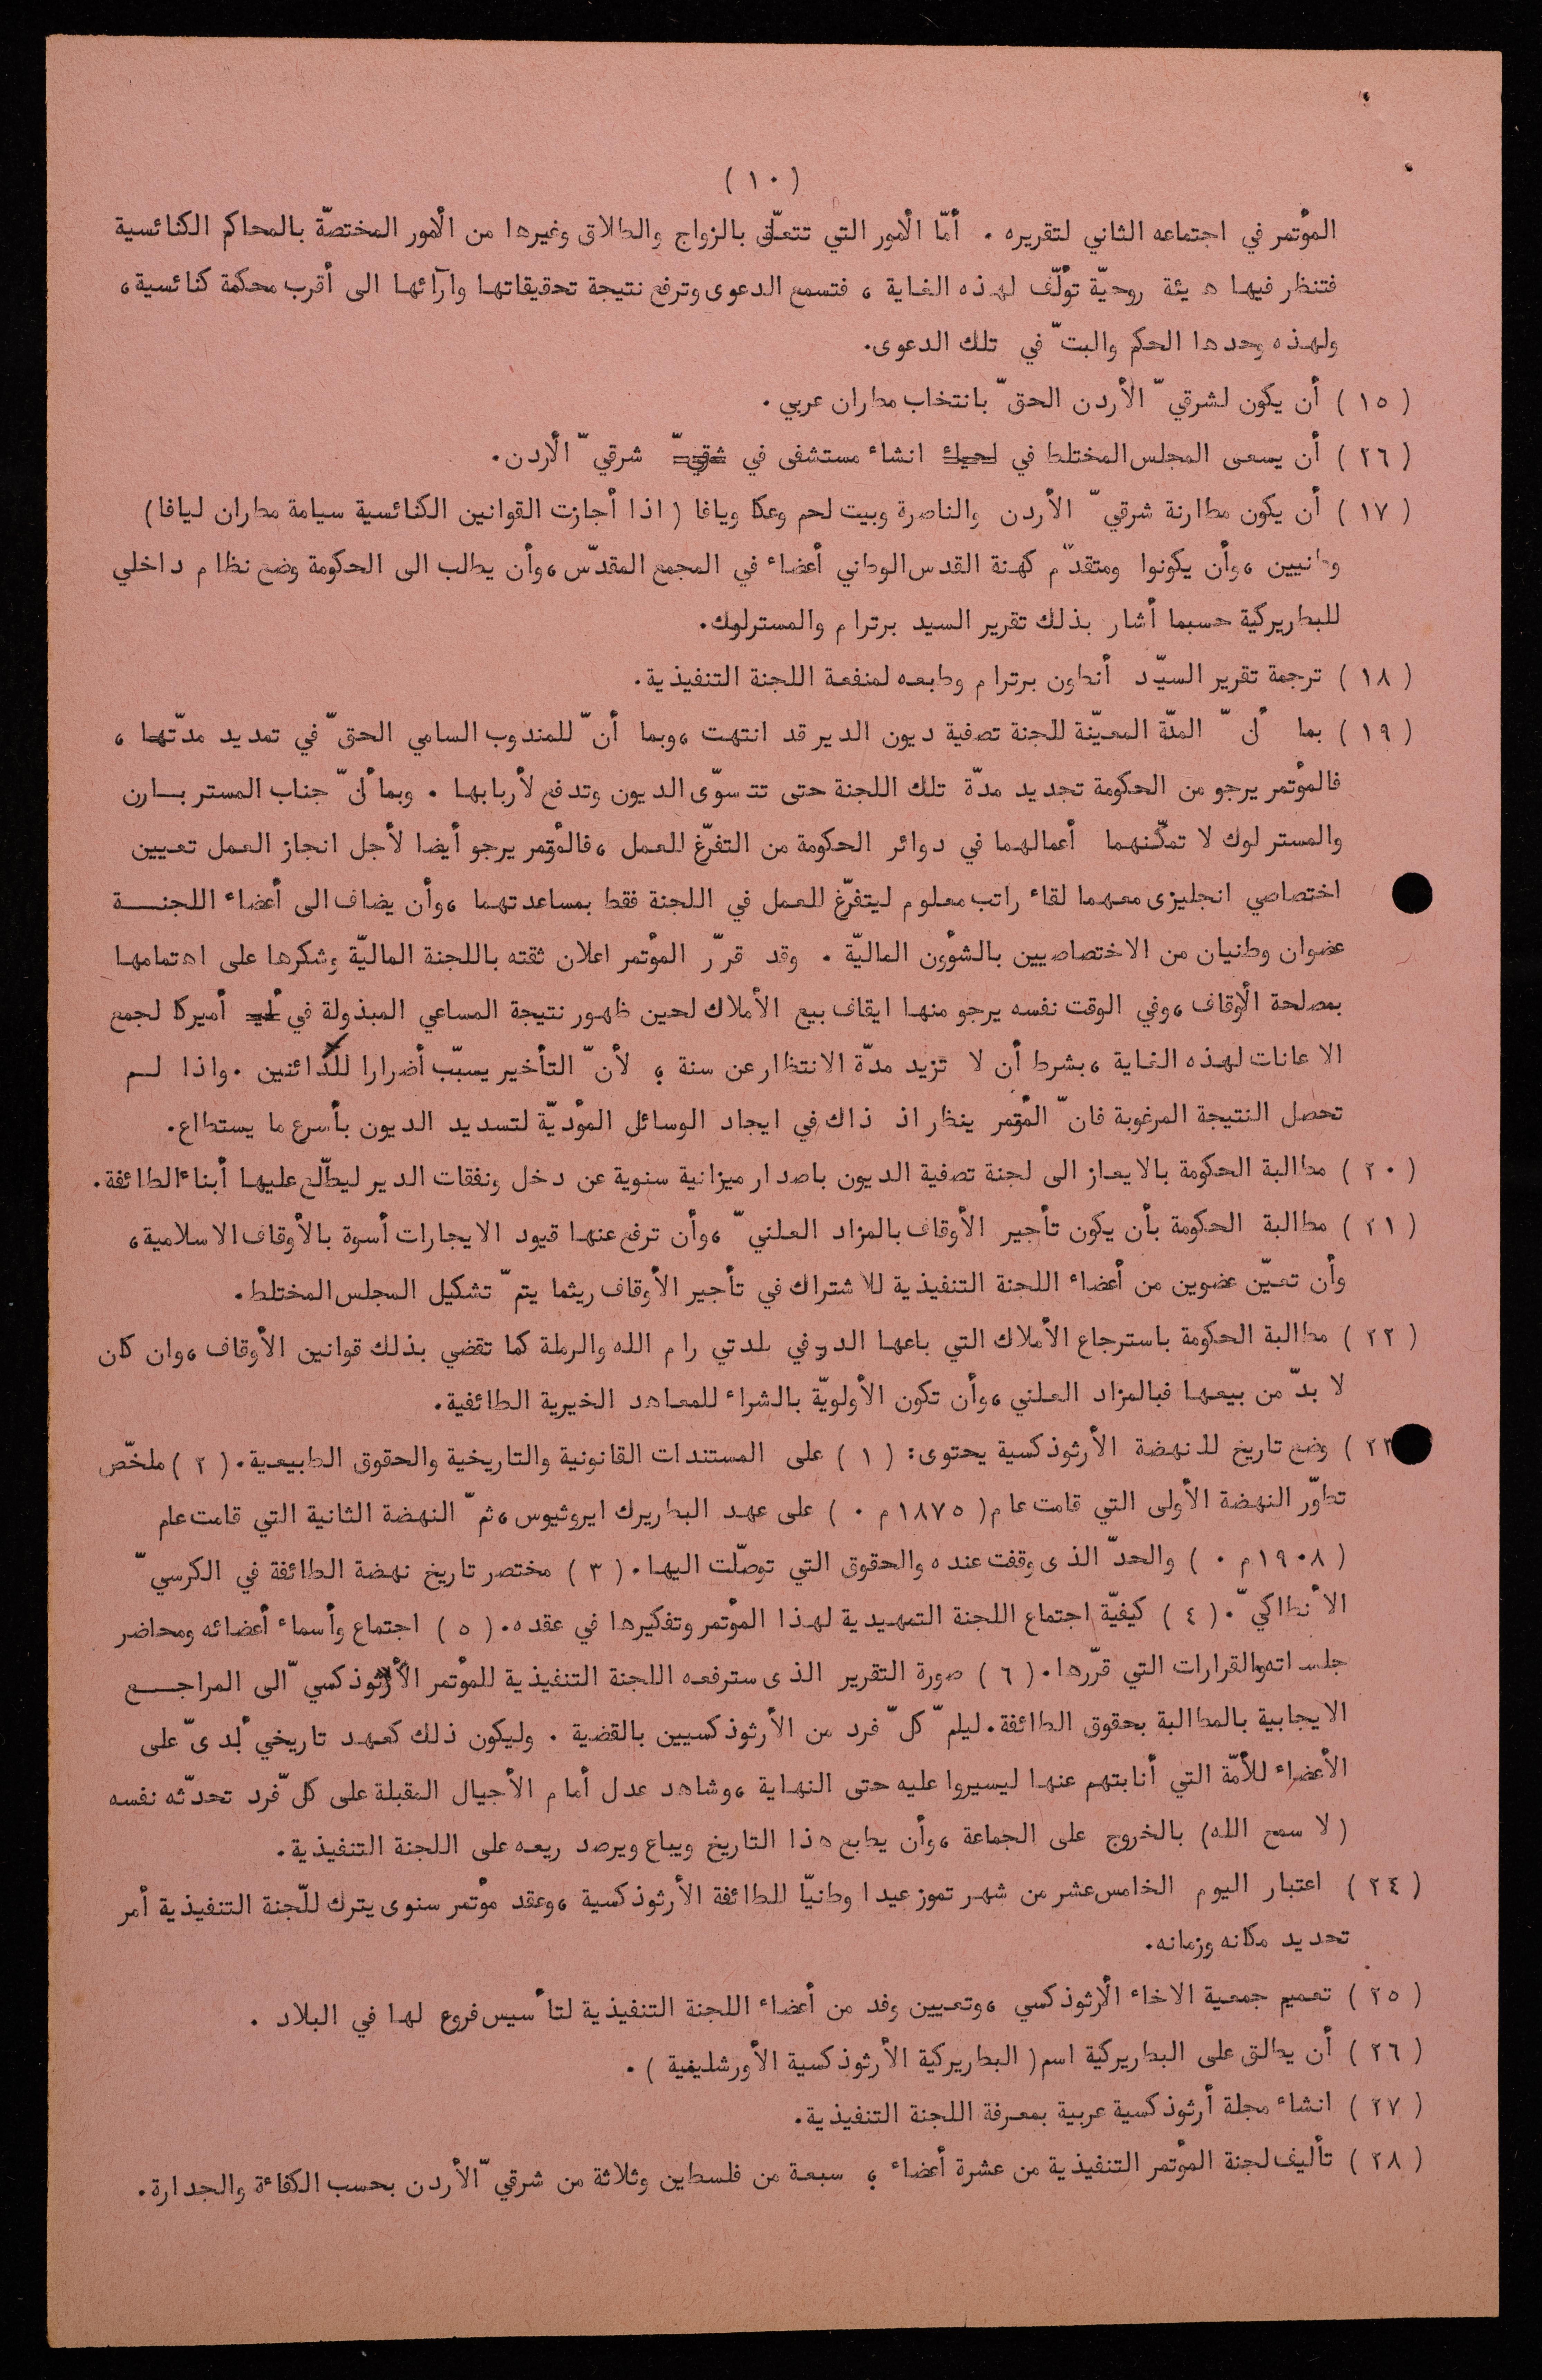 ( ١٠ )
المؤتمر في اجتماعه الثاني لتقريره ٠ أمّا الأمور التي تتعلّق بالزواج والطلاق وغيرها من الأمور المختصّة بالمحاكم الكنائسية
فتنظر فيها هيئة روحيّة تؤلّف لهذه الغاية ، فتسمع الدعوى وترفع نتيجة تحقيقاتها وآرائها الى أقرب محكمة كنائسية،
ولهذه وحدها الحكم والبتّ في تلك الدعوى.
( ١٥ ) أن يكون لشرقيّ الأردن الحقّ بانتخاب مطران عربي .
( ٢٦ ) أن يسعى المجلس المختلط في انشاء مستشفى في شرقيّ الأردن.
( ١٧ ) أن يكون مطارنة شرقيّ الأردن والناصرة وبيت لحم وعكا ويافا ( اذا أجازت القوانين الكنائسية سيامة مطران ليافا)
وطنيين ،وأن يكونوا ومتقدّم كهنة القدس الوطاني أعضاء في المجمع المقدّس ،وأن يطالب الى الحكومة وضع نظام داخلي
للبطريركية حسبما أشار بذلك تقرير السيد برترام والمسترلوك.
( ١٨ ) ترجمة تقرير السيّد أنطون برترام وطبعه لمنفعة اللجنة التنفيذية.
( ١٩ ) بما أنّ المدّة المعيّنة للجنة تصفية ديون الدير قد انتهت ،وبما أنّ للمندوب السامي الحقّ في تمديد مدّتها ،
فالمؤتمر يرجو من الحكومة تجديد مدّة تلك اللجنة حتى تتسوّى الديون وتدفع لأربابها . وبما أنّ جناب المستر بـارن
والمستر لوك لا تمكّنهما أعمالهما في دوائر الحكومة من التفرّغ للعمل ،فالمؤتمر يرجو أيضا لأجل انجاز العمل تعيين
اختصاصي انجليزى معهما لقاء راتب معلوم ليتفرّغ للعمل في اللجنة فقط بمساعدتهما ،وأن يضاف الى أعضاء اللجنـــة
عضوان وطنيان من الاختصاصيين بالشؤون الماليّة . وقد قرّر المؤتمر اعلان ثقته باللجنة الماليّة وشكرها على اهتمامها
بمصلحة الأوقاف ،وفي الوقت نفسه يرجو منها ايقاف بيع الأملاك لحين ظهور نتيجة المساعي المبذولة في أميركا لجمع
الاعانات لهذه الغاية ،بشرط أن لا تزيد مدّة الانتظار عن سنة ؛ لأنّ التأخير يسبّب أضرارا للدائنين .واذا لـم
تحصل النتيجة المرغوبة فانّ المؤتمر ينظر اذ ذاك في ايجاد الوسائل المؤديّة لتسديد الديون بأسرع ما يستطاع.
( ٢٠ ) مطالبة الحكومة بالايعاز الى لجنة تصفية الديون باصدار ميزانية سنوية عن دخل ونفقات الدير ليطّلع عليها أبناء الطائفة.
( ٢١ ) مطالبة الحكومة بأن يكون تأجير الأوقاف بالمزاد العلنيّ ،وأن ترفع عنها قيود الايجارات أسوة بالأوقاف الاسلامية،
وأن تعيّن عضوين من أعضاء اللجنة التنفيذية للاشتراك في تأجير الأوقاف ريثما يتمّ تشكيل المجلس المختلط.
( ٢٢ ) مطالبة الحكومة باسترجاع الأملاك التي باعها الدير في بلدتي رام الله والرملة كما تقضي بذلك قوانين الأوقاف ،وان كان
لا بدّ من بيعها فبالمزاد العلني ،وأن تكون الأولويّة بالشراء للمعاهد الخيرية الطائفية.
٢٣ ) وضع تاريخ للنهضة الأرثوذكسية يحتوى: ( ١ ) على المستندات القانونية والتاريخية والحقوق الطبيعية.( ٢ )ملخّص
تطوّر النهضة الأولى التي قامت عام( ١٨٧٥م ٠ ) على عهد البطريرك ايروثيوس ،ثمّ النهضة الثانية التي قامت عام
( ١٩٠٨م ٠ ) والحدّ الذى وقفت عنده والحقوق التي توصّلت اليها.( ٣ ) مختصر تاريخ نهضة الطائفة في الكرسيّ
الأنطاكيّ.( ٤ ) كيفيّة اجتماع اللجنة التمهيدية لهذا المؤتمر وتفكيرها في عقده.( ٥ ) اجتماع وأسماء أعضائه ومحاضر
جلساته والقرارات التي قرّرها.( ٦ ) صورة التقرير الذى سترفعه اللجنة التنفيذية للمؤتمر الأرثوذكسيّ الى المراجـــع
الايجابية بالمطالبة بحقوق الطائفة.ليلمّ كلّ فرد من الأرثوذكسيين بالقضية . وليكون ذلك كعهد تاريخي أبدىّ على
الأعضاء للأمّة التي أنابتهم عنها ليسيروا عليه حتى النهاية ،وشاهد عدل أمام الأجيال المقبلة على كلّ فرد تحدّثه نفسه
( لا سمح الله) بالخروج على الجماعة ،وأن يطبع هذا التاريخ ويباع ويرصد ريعه على اللجنة التنفيذية.
( ٢٤ ) اعتبار اليوم الخامس عشر من شهر تموز عيدا وطنيّا للطائفة الأرثوذكسية ،وعقد مؤتمر سنوى يترك للّجنة التنفيذية أمر
تحديد مكانه وزمانه.
( ٢٥ ) تعميم جمعية الاخاء الأرثوذكسي ،وتعيين وفد من أعضاء اللجنة التنفيذية لتأسيس فروع لها في البلاد .
( ٢٦ ) أن يطلق على البطريركية اسم( البطريركية الأرثوذكسية الأورشليمية ) .
( ٢٧ ) انشاء مجلة أرثوذكسية عربية بمعرفة اللجنة التنفيذية.
( ٢٨ ) تأليف لجنة المؤتمر التنفيذية من عشرة أعضاء ؛ سبعة من فلسطين وثلاثة من شرقيّ الأردن بحسب الكفائة والجدارة.